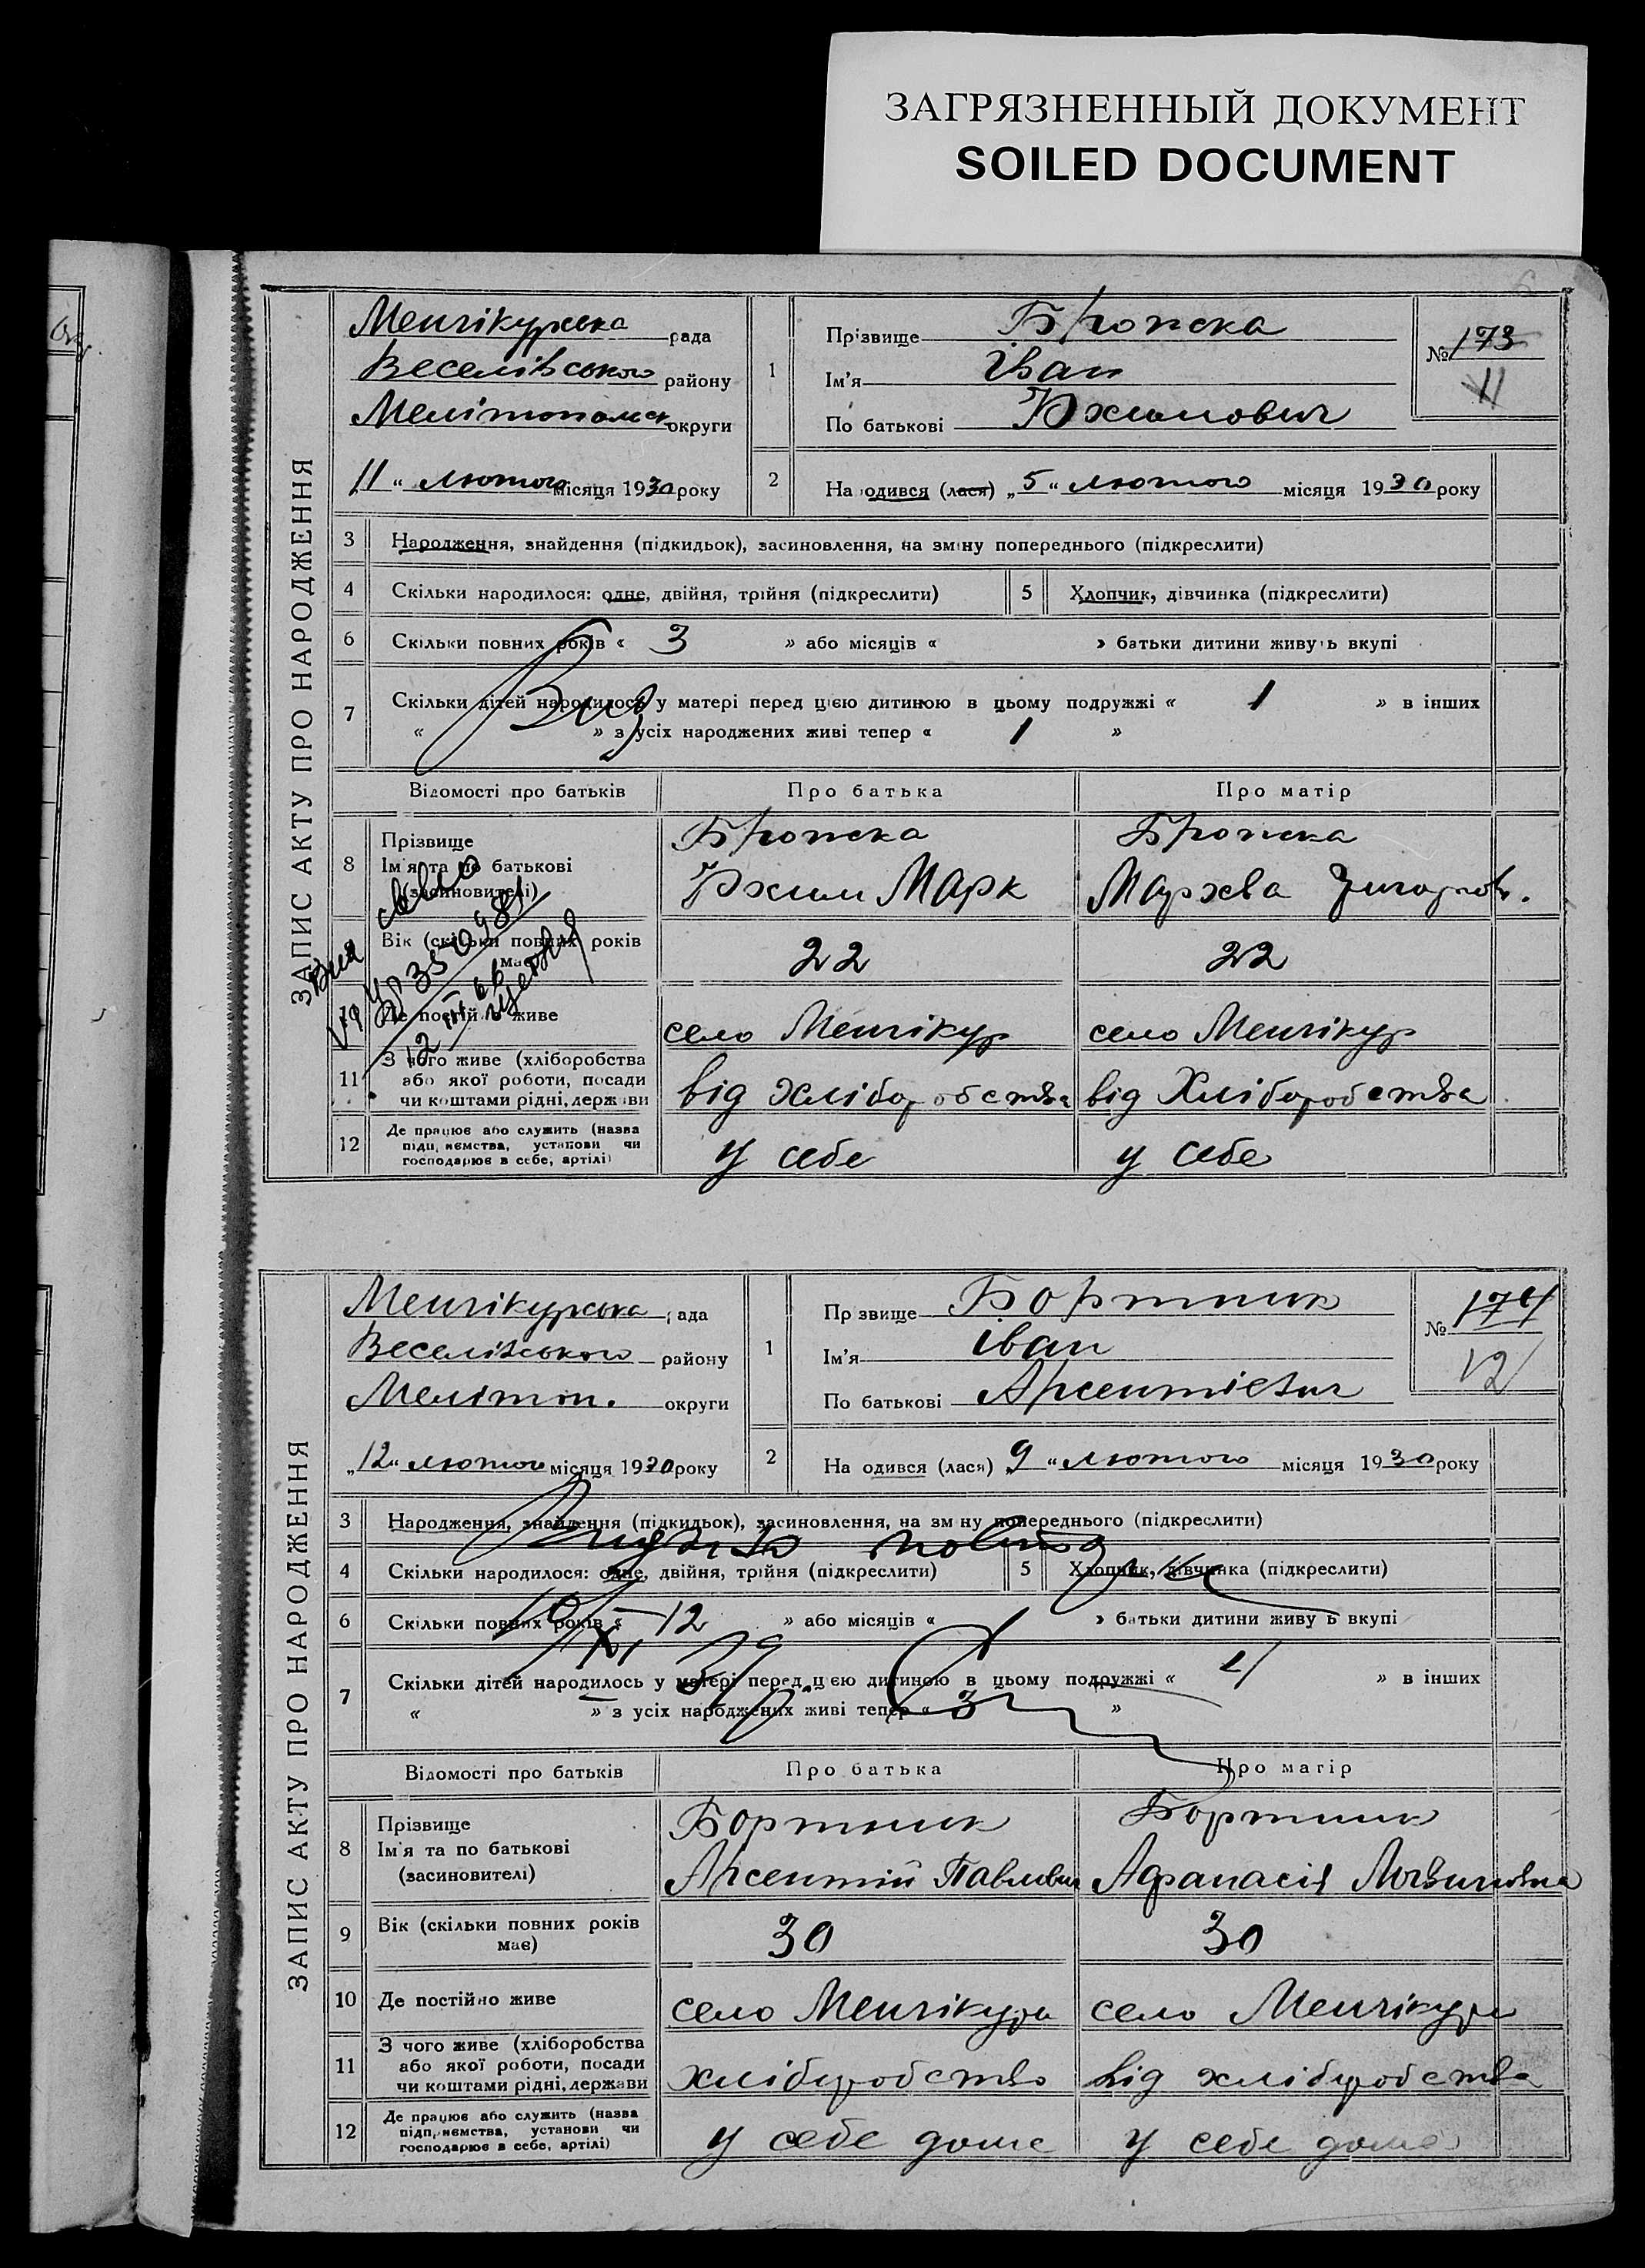 ЗАГРЯЗНЕННЫЙ ДОКУМЕНТ
SOILED DOCUMENT
ЗАПИС АКТУ ПРО НАРОДЖЕННЯ
Менчікурська рада
Веселівського району
Мелітопольск округи
11 " лютого місяця 1930 року
1 Прізвище
Ім'я Іван
По батькові
№ 173
11
2 Народився (лася) „5 " лютого місяця 1930 року
3 Народження, знайдення (підкидьок), засиновлення, на зміну попереднього (підкреслити)
4 Скільки народилося: одне, двійня, трійня (підкреслити) 5 Хлопчик, дівчинка (підкреслити)
6 Скільки повних років « 3 » або місяців « » батьки дитини живуть вкупі
7 Скільки дітей народилось у матері перед цією дитиною в цьому подружжі « 1 » в інших
« » з усіх народжених живі тепер « 1 »
Відомості про батьків Про батька Про матір
8 Прізвище
Ім'я та по батькові Марк
(засиновителі)
Вік (скільки повних років має) 22 22
Де постійно живе село Менчікур село Менчікур
11 З чого живе (хліборобства або якої роботи, посади чи коштами рідні, держави від Хліборобства від Хліборобства
12 Де працює або служить (назва підприємства, установи чи господарює в себе, артілі) у себе у себе
ЗАПИС АКТУ ПРО НАРОДЖЕННЯ
Менчікурська рада
Веселівського району
Меліноп. округи
„12" лютого місяця 1930 року
1 Прізвище Бортник
Ім'я Іван
По батькові Арсентієвич
№ 174
12
2 Народився (лася) „9 " лютого місяця 1930 року
3 Народження, знайдення (підкидьок), засиновлення, на зміну попереднього (підкреслити)
4 Скільки народилося: одне, двійня, трійня (підкреслити) 5 Хлопчик, дівчинка (підкреслити)
6 Скільки повних років « 12 » або місяців « » батьки дитини живуть вкупі
7 Скільки дітей народилось у матері перед цією дитиною в цьому подружжі « 4 » в інших
« — » з усіх народжених живі тепер « 3 »
Відомості про батьків Про батька Про матір
8 Прізвище Бортник Бортник
Ім'я та по батькові Арсентій Павлович Афанасія Логвиновна
(засиновителі)
9 Вік (скільки повних років має) 30 30
10 Де постійно живе село Менчікури село Менчікури
11 З чого живе (хліборобства або якої роботи, посади чи коштами рідні, держави хліборобство від хліборобства
12 Де працює або служить (назва підприємства, установи чи господарює в себе, артілі) у себе дома у себе дома